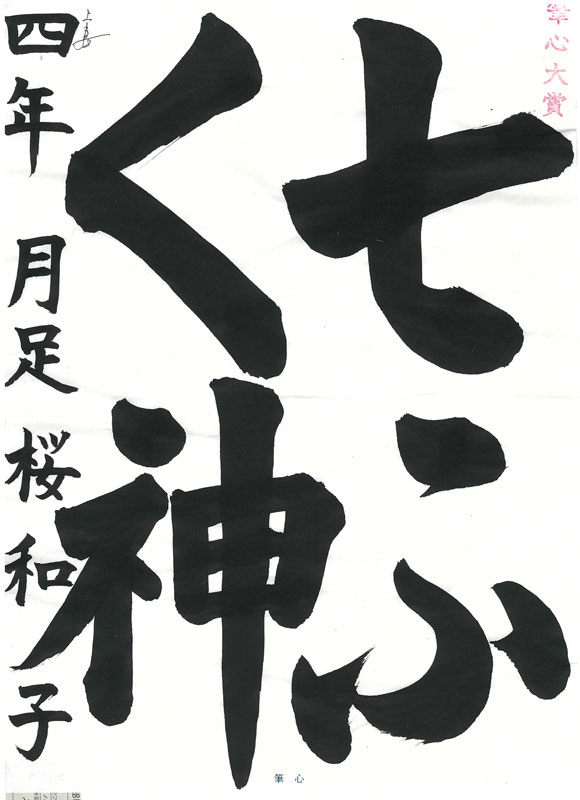 筆心大賞
七ふ
く神
四年 月足 桜和子
筆心